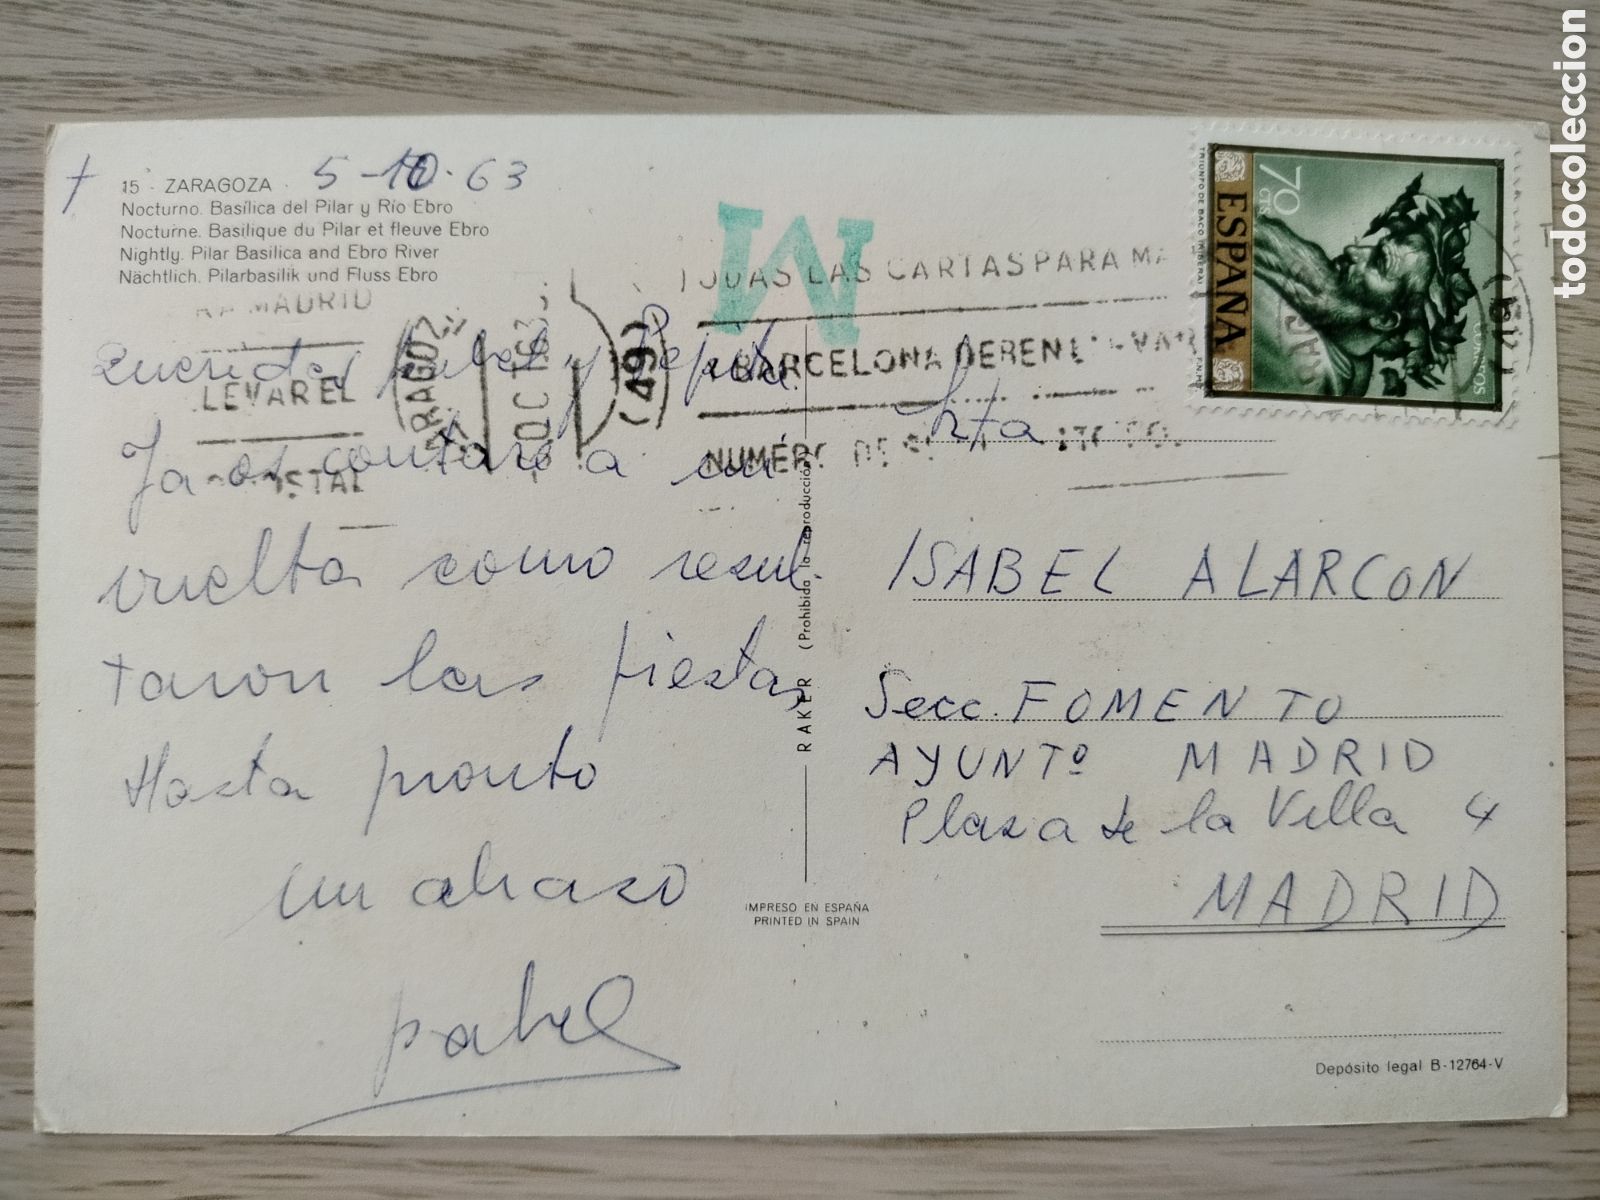 † 15 - ZARAGOZA - 5-10-63
Nocturno. Basílica del Pilar y Río Ebro
Nocturne. Basilique du Pilar et fleuve Ebro
Nightly. Pilar Basilica and Ebro River
Nächtlich. Pilarbasilik und Fluss Ebro
M
TODAS LAS CARTAS PARA MA
BARCELONA DEBEN LLEVAR
NUMERO DE
MADRID
LEVAR EL
OSTAL
ZARAGOZA
OCT 63
(49)
(49)
Queridas y Pepita
Ya os contaré a mi
vuelta como resul-
taron las fiestas
Hasta pronto
un abrazo
Srta
ISABEL ALARCON
Secc. FOMENTO
AYUNTº MADRID
Plaza de la Villa 4
MADRID
RAKER (Prohibida la reproducción)
IMPRESO EN ESPAÑA
PRINTED IN SPAIN
Depósito legal B-12764-V
70 CTS
ESPAÑA
TRIUNFO DE BACO (RIBERA)
todocoleccion